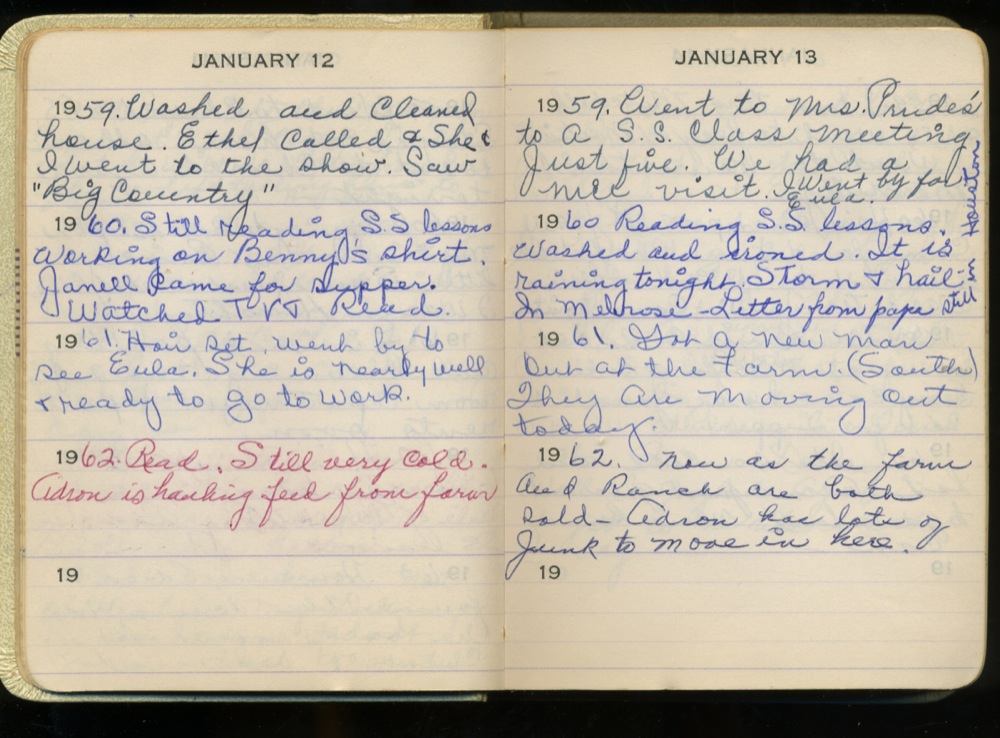 JANUARY 12
1959. Washed and Cleaned
house. Ethel Called & She &
I went to the show. Saw
"Big Country"
1960. Still reading S.S lessons
Working on Benny's shirt.
Janell Came for supper.
Watched T V & Read.
1961. Hair set. went by to
see Eula. She is nearly well
& ready to go to work.
1962. Read. Still very cold.
Adron is hauling feed from farm
19
JANUARY 13
1959. Went to Mrs. Prude's
to a S.S. Class meeting
Just five. We had a
nice visit. I went by for
Eula.
1960 Reading S.S. lessons.
Washed and ironed. It is
raining tonight. Storm & hail-
In Melrose - Letter from papa still
in Houston
1961. Got a new man
out at the Farm. (South)
They are moving out
today.
1962. now as the farm
and Ranch are both
sold - Adron has lots of
Junk to move in here.
19